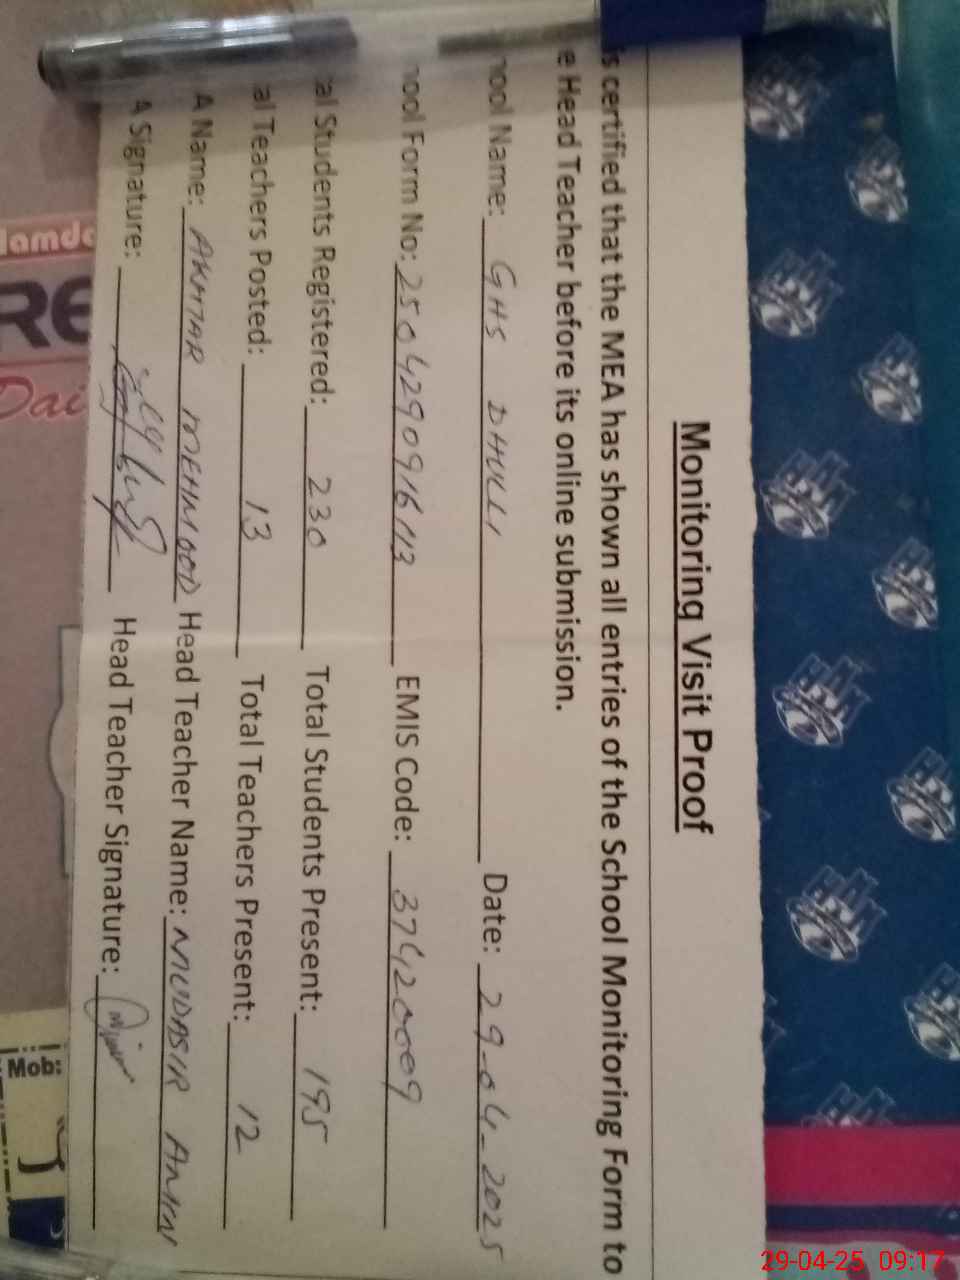 Monitoring Visit Proof
s certified that the MEA has shown all entries of the School Monitoring Form to
e Head Teacher before its online submission.
ool Name: GHS DHULLI Date: 29-04-2025
ool Form No: EMIS Code: 37420009
al Students Registered: 230 Total Students Present: 195
al Teachers Posted: 13 Total Teachers Present: 12
A Name: AKHTAR MEHMOOD Head Teacher Name: MUDASIR AMIN
A Signature: Head Teacher Signature:
amd
RE
Dai
Mob:
29-04-25 09:17